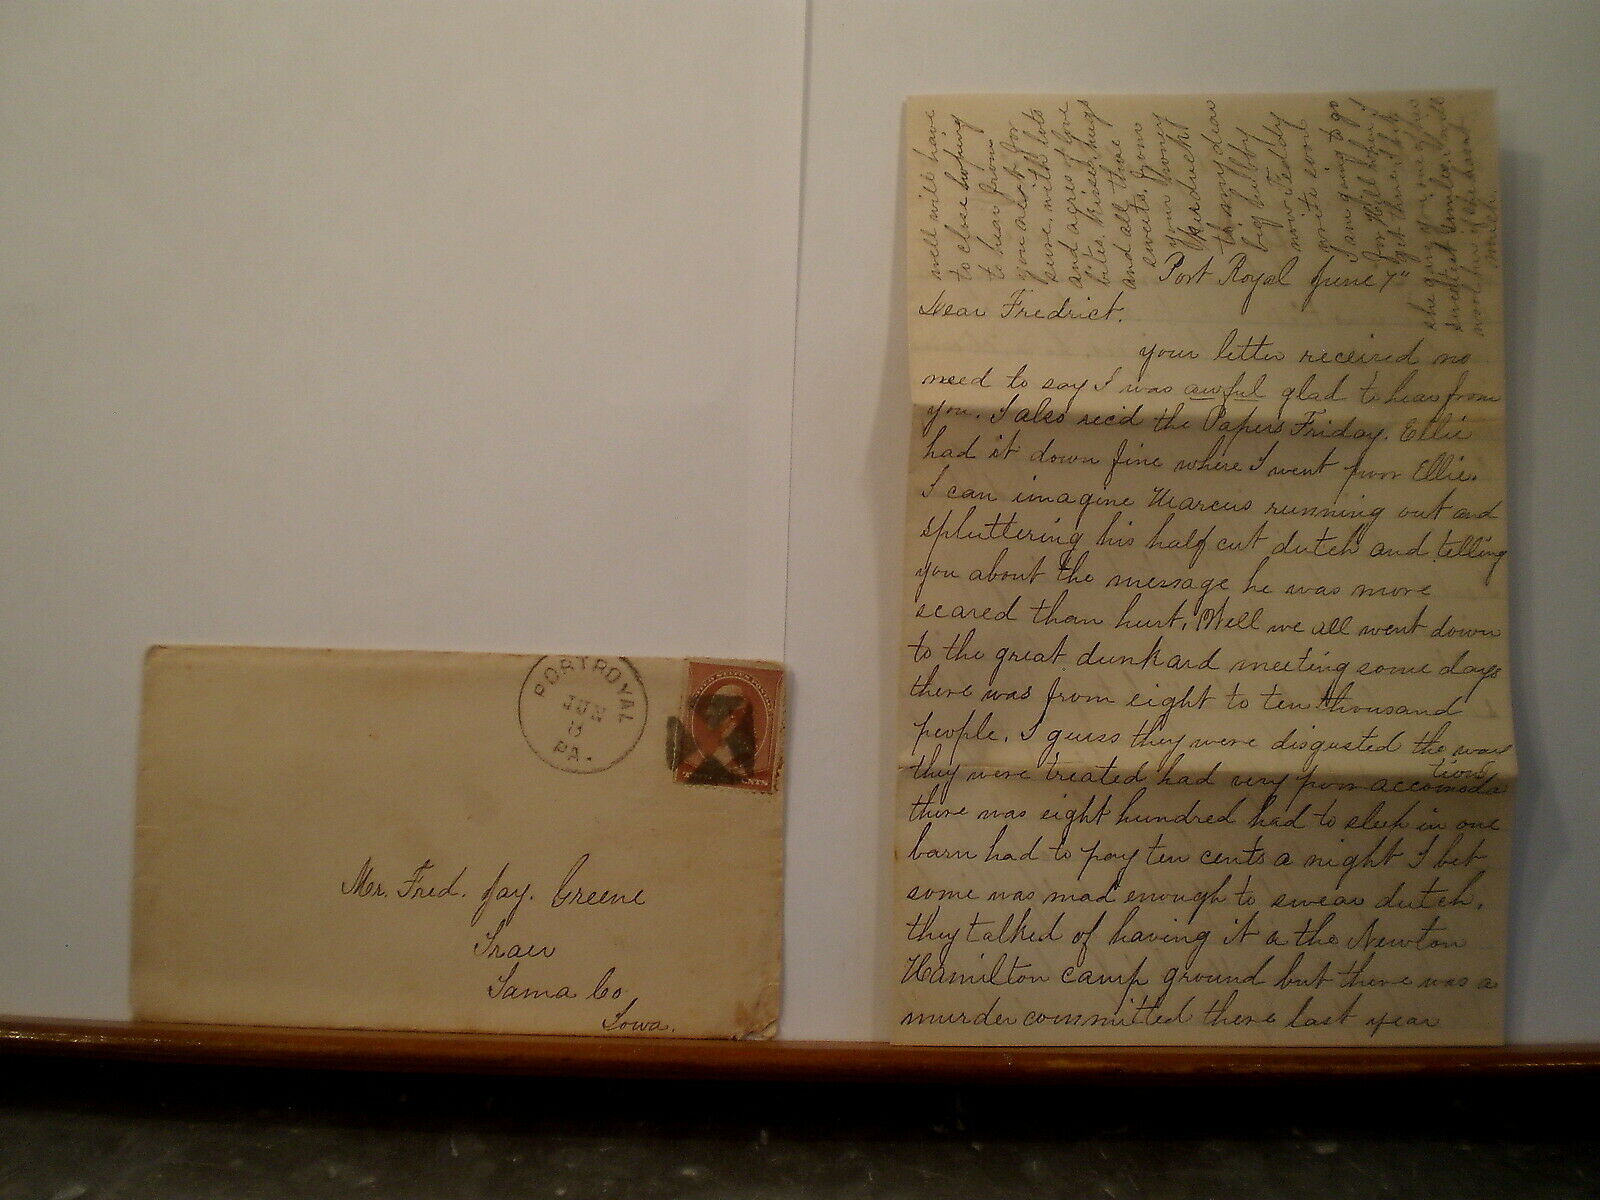 PORT ROYAL
JUN
8
PA.
CENTS
Mr. Fred. Jay. Greene
Traer
Tama Co
Iowa.
well will have
to close hoping
to hear from
you next for
sure, with lots
and acres of love
bites, kisses, hugs
and all those
sweets. from
your honey
duck
to my dear
big hubby
now Teddy
write soon
I am going to go
for Nell when I
get there, I bet
she gave you one of her
sweetest smiles. I will
if she hasnt
much.
Port Royal June 7"
Dear Fredrict.
your letter received no
need to say I was awful glad to hear from
you. I also rec'd the Papers Friday. Ellie
had it down fine where I went poor Ellie.
I can imagine Marcus running out and
spluttering his half cut dutch and telling
you about the message he was more
scared than hurt. Well we all went down
to the great dunkard meeting some days
there was from eight to ten thousand
people. I guess they were disgusted the way
they were treated had very poor accomoda
tions
there was eight hundred had to sleep in one
barn had to pay ten cents a night I bet
some was mad enough to swear dutch.
they talked of having it a the Newton
Hamilton camp ground but there was a
murder committed there last year